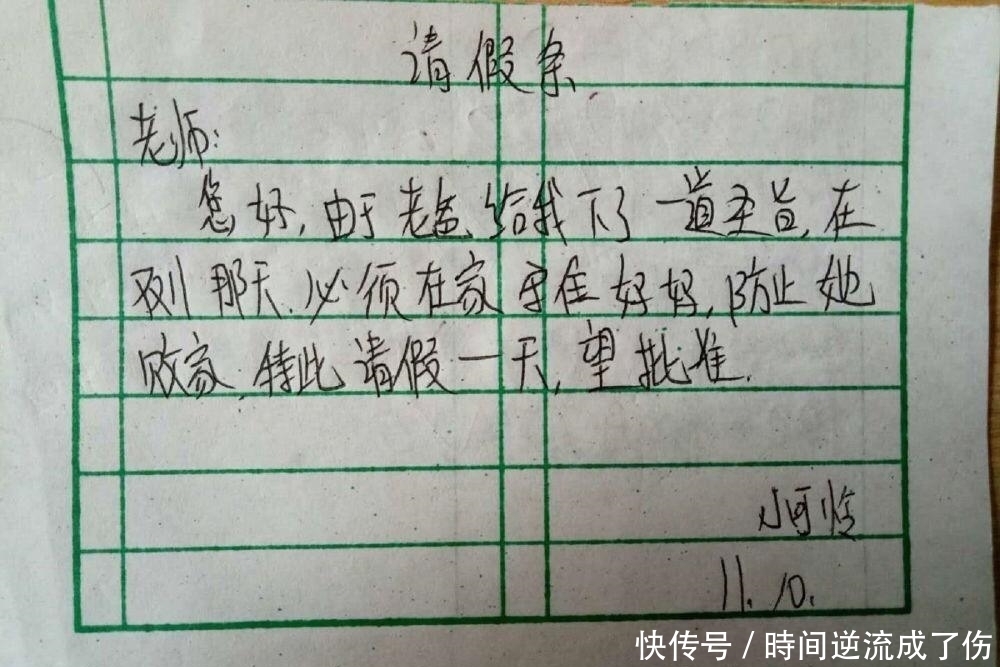 请假条
老师:
您好,由于老爸给我下了一道圣旨,在
双11那天必须在家守住妈妈,防止她
败家,特此请假一天,望批准.
小可怜
11.10.
快传号 / 時间逆流成了伤